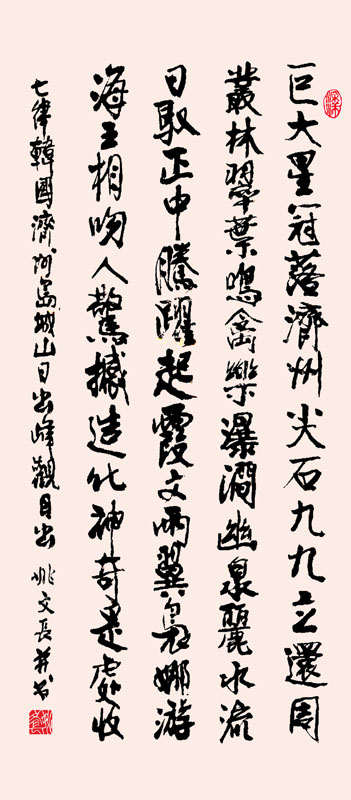 巨大星冠落濟州尖石九九立還周
叢林翠葉鳴禽樂瀑澗幽泉麗水流
日馭正中騰躍起霞文翼裊娜游
海相吻人驚撼造化神奇是處收
七律韓國濟州島城山日出峰觀日出 姚文長并書